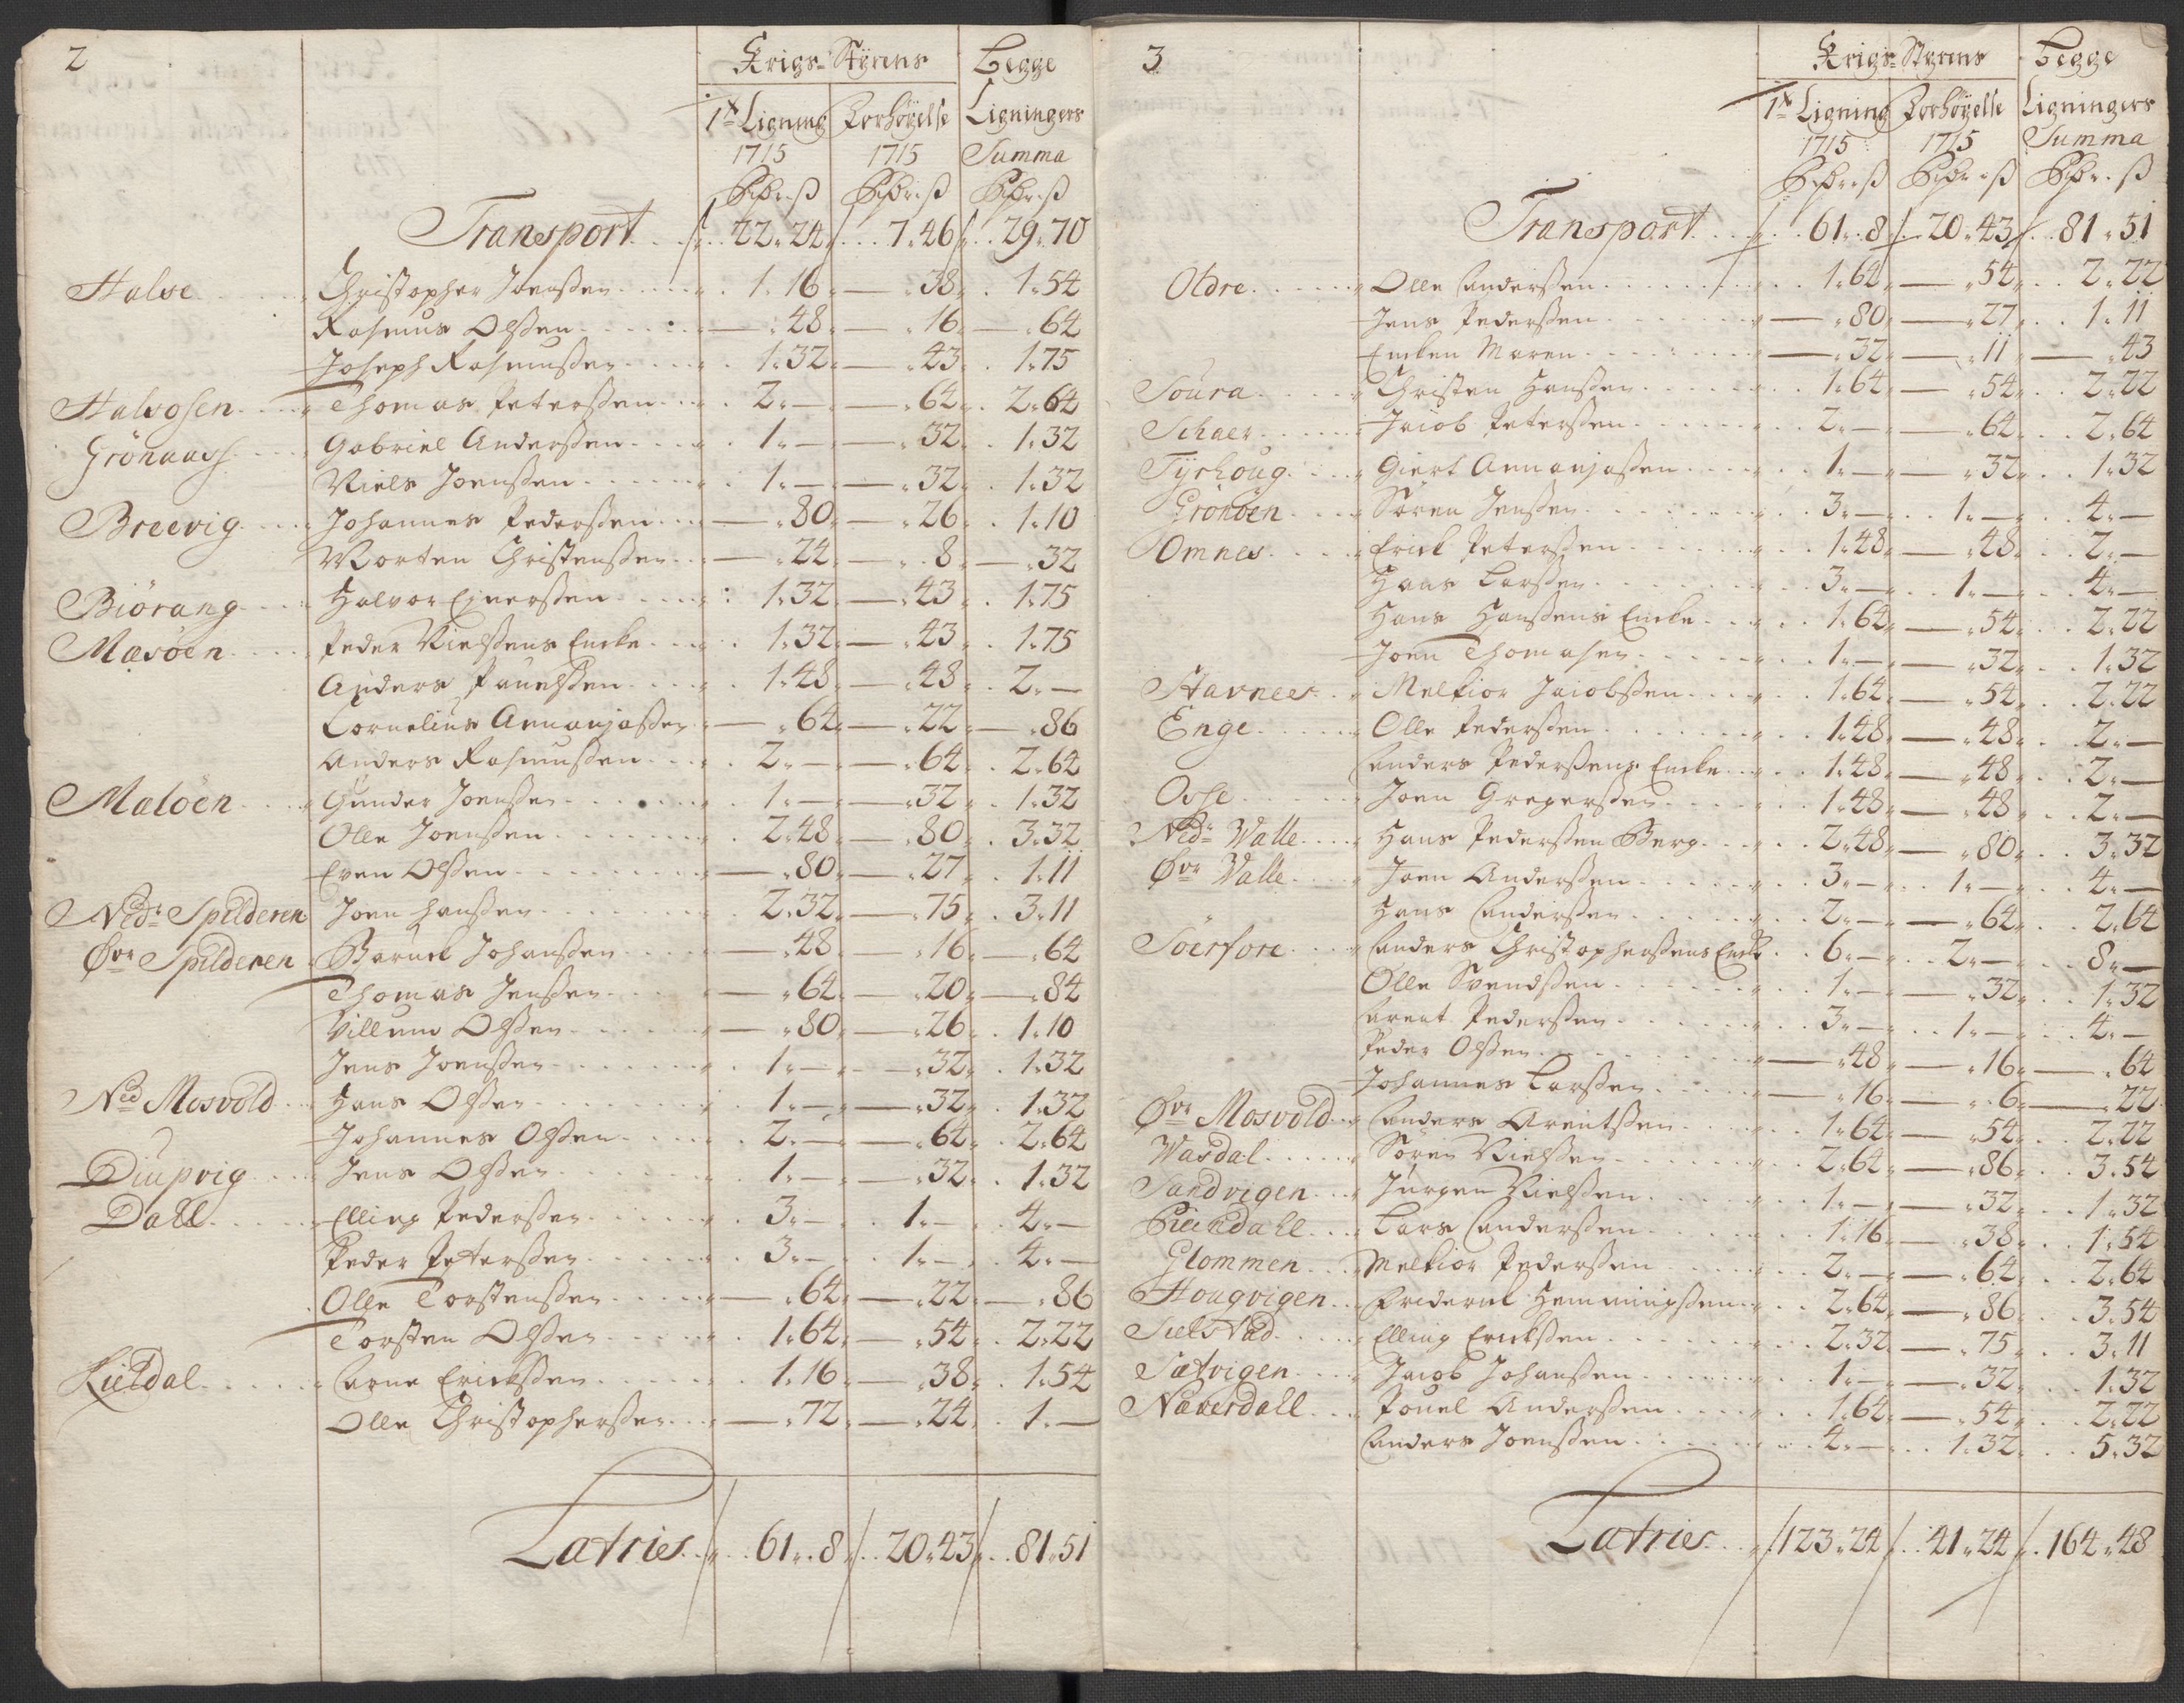 2
Krigs-Styrens Begge
1ste Ligning Forhöyelse Ligningers
1715 1715 Summa
Rdr. ß Rdr. ß Rdr. ß
Transport 22. 24 7. 46 29. 70
Halse Christopher Joenssen 1. 16 — 38 1. 54
Rasmus Olssen — 48 — 16 — 64
Joseph Rasmussen 1. 32 — 43 1. 75
Halsosen Thomas Peterssen 2. — — 64 2. 64
Grönaass Gabriel Anderssen 1. — — 32 1. 32
Niels Joenssen 1. — — 32 1. 32
Breevig Johannes Pederssen — 80 — 26 1. 10
Morten Christenssen — 24 — 8 — 32
Biörang Halvor Ejnerssen 1. 32 — 43 1. 75
Mæsöen Peder Nielssens Encke 1. 32 — 43 1. 75
Anders Pauelssen 1. 48 — 48 2. —
Cornelius Annanjassen — 64 — 22 — 86
Anders Rasmussen 2. — — 64 2. 64
Malöen Gunder Joenssen 1. — — 32 1. 32
Olle Joenssen 2. 48 — 80 3. 32
Even Olssen — 80 — 27 1. 11
Nedr Spilderen Joen Hanssen 2. 32 — 75 3. 11
Øvr Spilderen Baruck Johanssen — 48 — 16 — 64
Thomas Jenssen — 64 — 20 — 84
Villum Olssen — 80 — 26 1. 10
Jens Joenssen 1. — — 32 1. 32
Ned Mosvold Hans Olssen 1. — — 32 1. 32
Johannes Olssen 2. — — 64 2. 64
Diupvig Jens Olssen 1. — — 32 1. 32
Dall Elling Pederssen 3. — 1. — 4. —
Peder Petterssen 3. — 1. — 4. —
Olle Torstenssen — 64 — 22 — 86
Torsten Olssen 1. 64 — 54 2. 22
Kieldal Arne Erickssen 1. 16 — 38 1. 54
Olle Christopherssen — 72 — 24 1. —
Latries 61. 8 20. 43 81. 51
3
Krigs-Styrens Begge
1ste Ligning Forhöyelse Ligningers
1715 1715 Summa
Rdr. ß Rdr. ß Rdr. ß
Transport 61. 8 20. 43 81. 51
Oldre Olle Anderssen 1. 64 — 54 2. 22
Jens Pederssen — 80 — 27 1. 11
Encken Maren — 32 — 11 — 43
Soura Christen Hanssen 1. 64 — 54 2. 22
Schaer Jacob Peterssen 2. — — 64 2. 64
Tÿrhoug Giert Annanjassen 1. — — 32 1. 32
Grönöen Sören Jenssen 3. — 1. — 4. —
Omnes Erick Peterssen 1. 48 — 48 2. —
Hans Larssen 3. — 1. — 4. —
Hans Hanssens Encke 1. 64 — 54 2. 22
Joen Thomasen 1. — — 32 1. 32
Stavnees Melkior Jacobssen 1. 64 — 54 2. 22
Enge Olle Pederssen 1. 48 — 48 2. —
Anders Pederssens Encke 1. 48 — 48 2. —
Osse Joen Gregerssen 1. 48 — 48 2. —
Nedr Walle Hans Pederssen Berg 2. 48 — 80 3. 32
Øvr Walle Joen Anderssen 3. — 1. — 4. —
" Hans Anderssen 2. — — 64 2. 64
Soerfore Anders Christopherssens Encke 6. — 2. — 8. —
Olle Svendssen 1. — — 32 1. 32
Arent Pederssen 3. — 1. — 4. —
Peder Olssen — 48 — 16 — 64
Johannes Larssen — 16 — 6 — 22
Øvr Mosvold Anders Arentssen 1. 64 — 54 2. 22
Wasdal Sören Nielssen 2. 64 — 86 3. 54
Sandvigen Jürgen Nielssen 1. — — 32 1. 32
Lars Anderssen 1. 16 — 38 1. 54
Glommen Melkior Pederssen 2. — — 64 2. 64
Hougvigen Friderick Hemmingssen 2. 64 — 86 3. 54
Elling Erickssen 2. 32 — 75 3. 11
Sætvigen Jacob Johanssen 1. — — 32 1. 32
Naverdall Pouel Anderssen 1. 64 — 54 2. 22
Anders Joenssen 4. — 1. 32 5. 32
Latries 123. 24 41. 24 164. 48